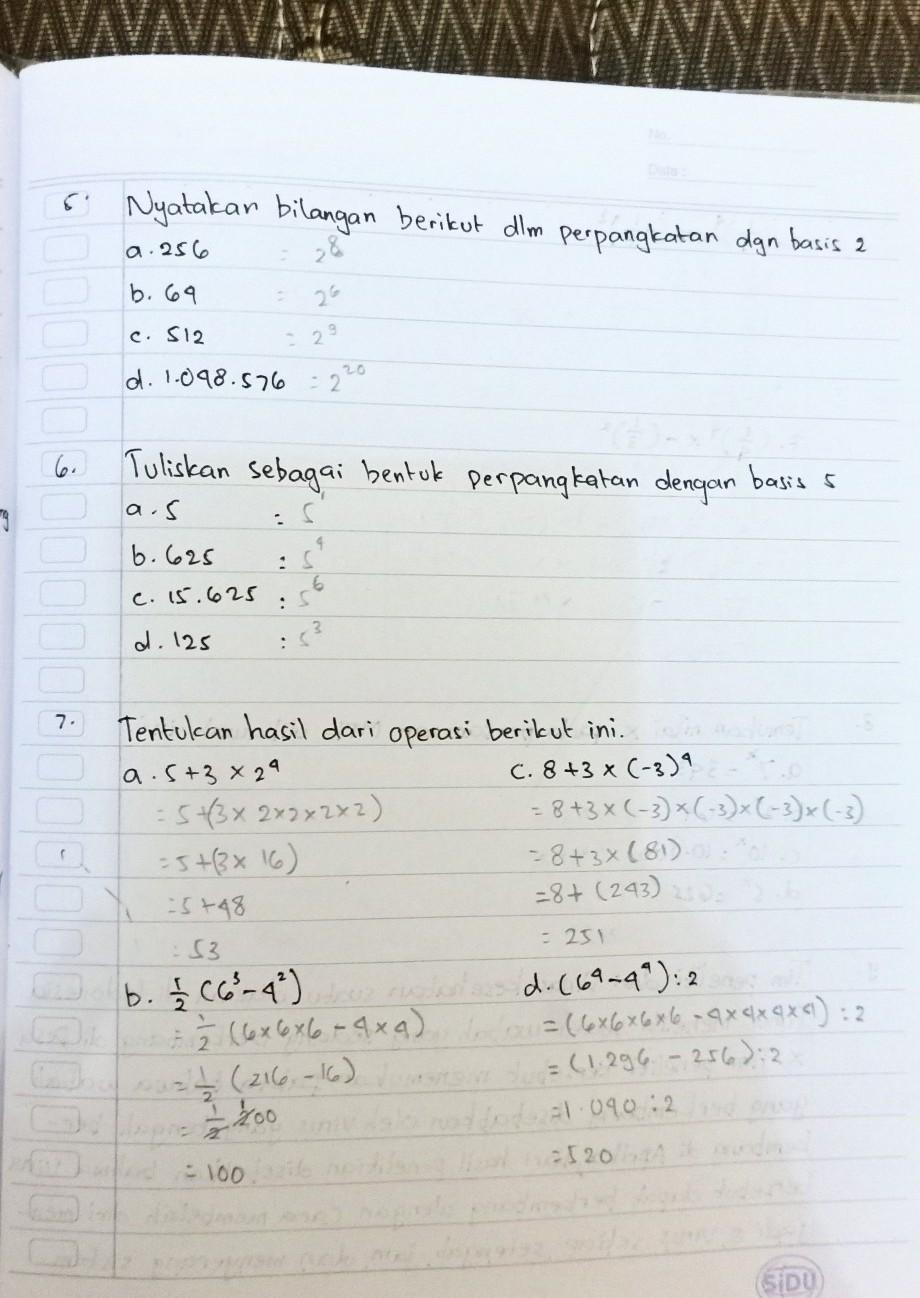 No.
Date :
5. Nyatakan bilangan berikut dlm perpangkatan dgn basis 2
a. 256 = 2⁸
b. 64 = 2⁶
c. 512 = 2⁹
d. 1.048.576 = 2²⁰
6. Tuliskan sebagai bentuk perpangkatan dengan basis 5
a. 5 = 5¹
b. 625 = 5⁴
c. 15.625 = 5⁶
d. 125 : 5³
7. Tentukan hasil dari operasi berikut ini.
a. 5 + 3 × 2⁴
= 5+(3 × 2×2×2×2)
= 5+(3× 16)
= 5+48
= 53
b. 1/2 (6³ – 4²)
= 1/2 (6×6×6 – 4×4)
= 1/2 (216 – 16)
= 1/2 200
= 100
c. 8 + 3 × (-3)⁴
= 8+3×(-3)×(-3)×(-3)×(-3)
= 8+3×(81)
= 8+ (243)
= 251
d. (6⁴ – 4⁴) : 2
= (6×6×6×6 – 4×4×4×4) : 2
= (1.296 – 256) : 2
= 1.040 : 2
= 520
SiDU